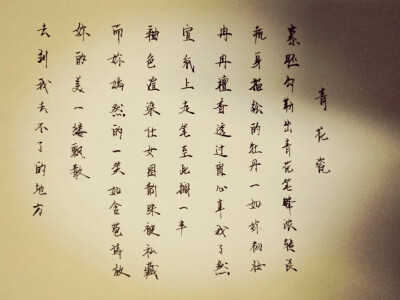 青花瓷
素胚勾勒出青花笔锋浓转淡
瓶身描绘的牡丹一如妳初妆
冉冉檀香透过窗心事我了然
宣纸上走笔至此搁一半
釉色渲染仕女图韵味被私藏
而妳嫣然的一笑如含苞待放
妳的美一缕飘散
去到我去不了的地方